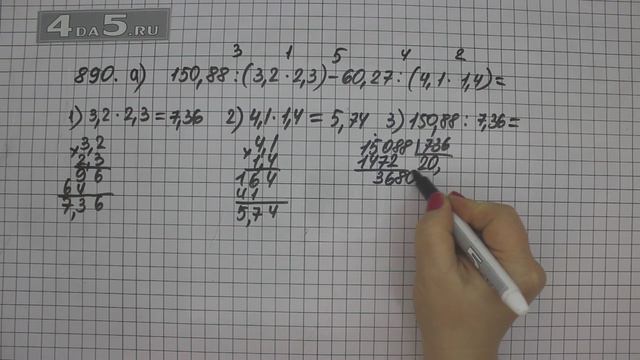 4DA5.RU
3 1 5 4 2
890. а) 150,88 : (3,2 · 2,3) - 60,27 : (4,1 · 1,4) =
1) 3,2 · 2,3 = 7,36 2) 4,1 · 1,4 = 5,74 3) 150,88 : 7,36 =
× 3,2
2,3
96
64
7,36
× 4,1
1,4
164
41
5,74
15088 | 736
1472 20,
3680